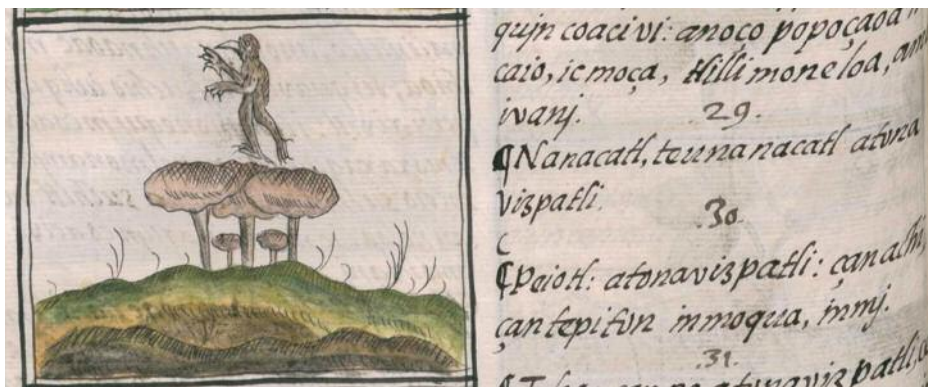 qujn coacivi: anoço popoçaoa
caio, ic moça, tlilli moneloa,
ivanj.
.29.
¶Nanacatl, teunanacatl atona
vizpatli.
.30.
¶Peiotl: atonavizpatli: çan achi,
çan tepiton in moqua, in mj.
.31.
atunavizpatli,